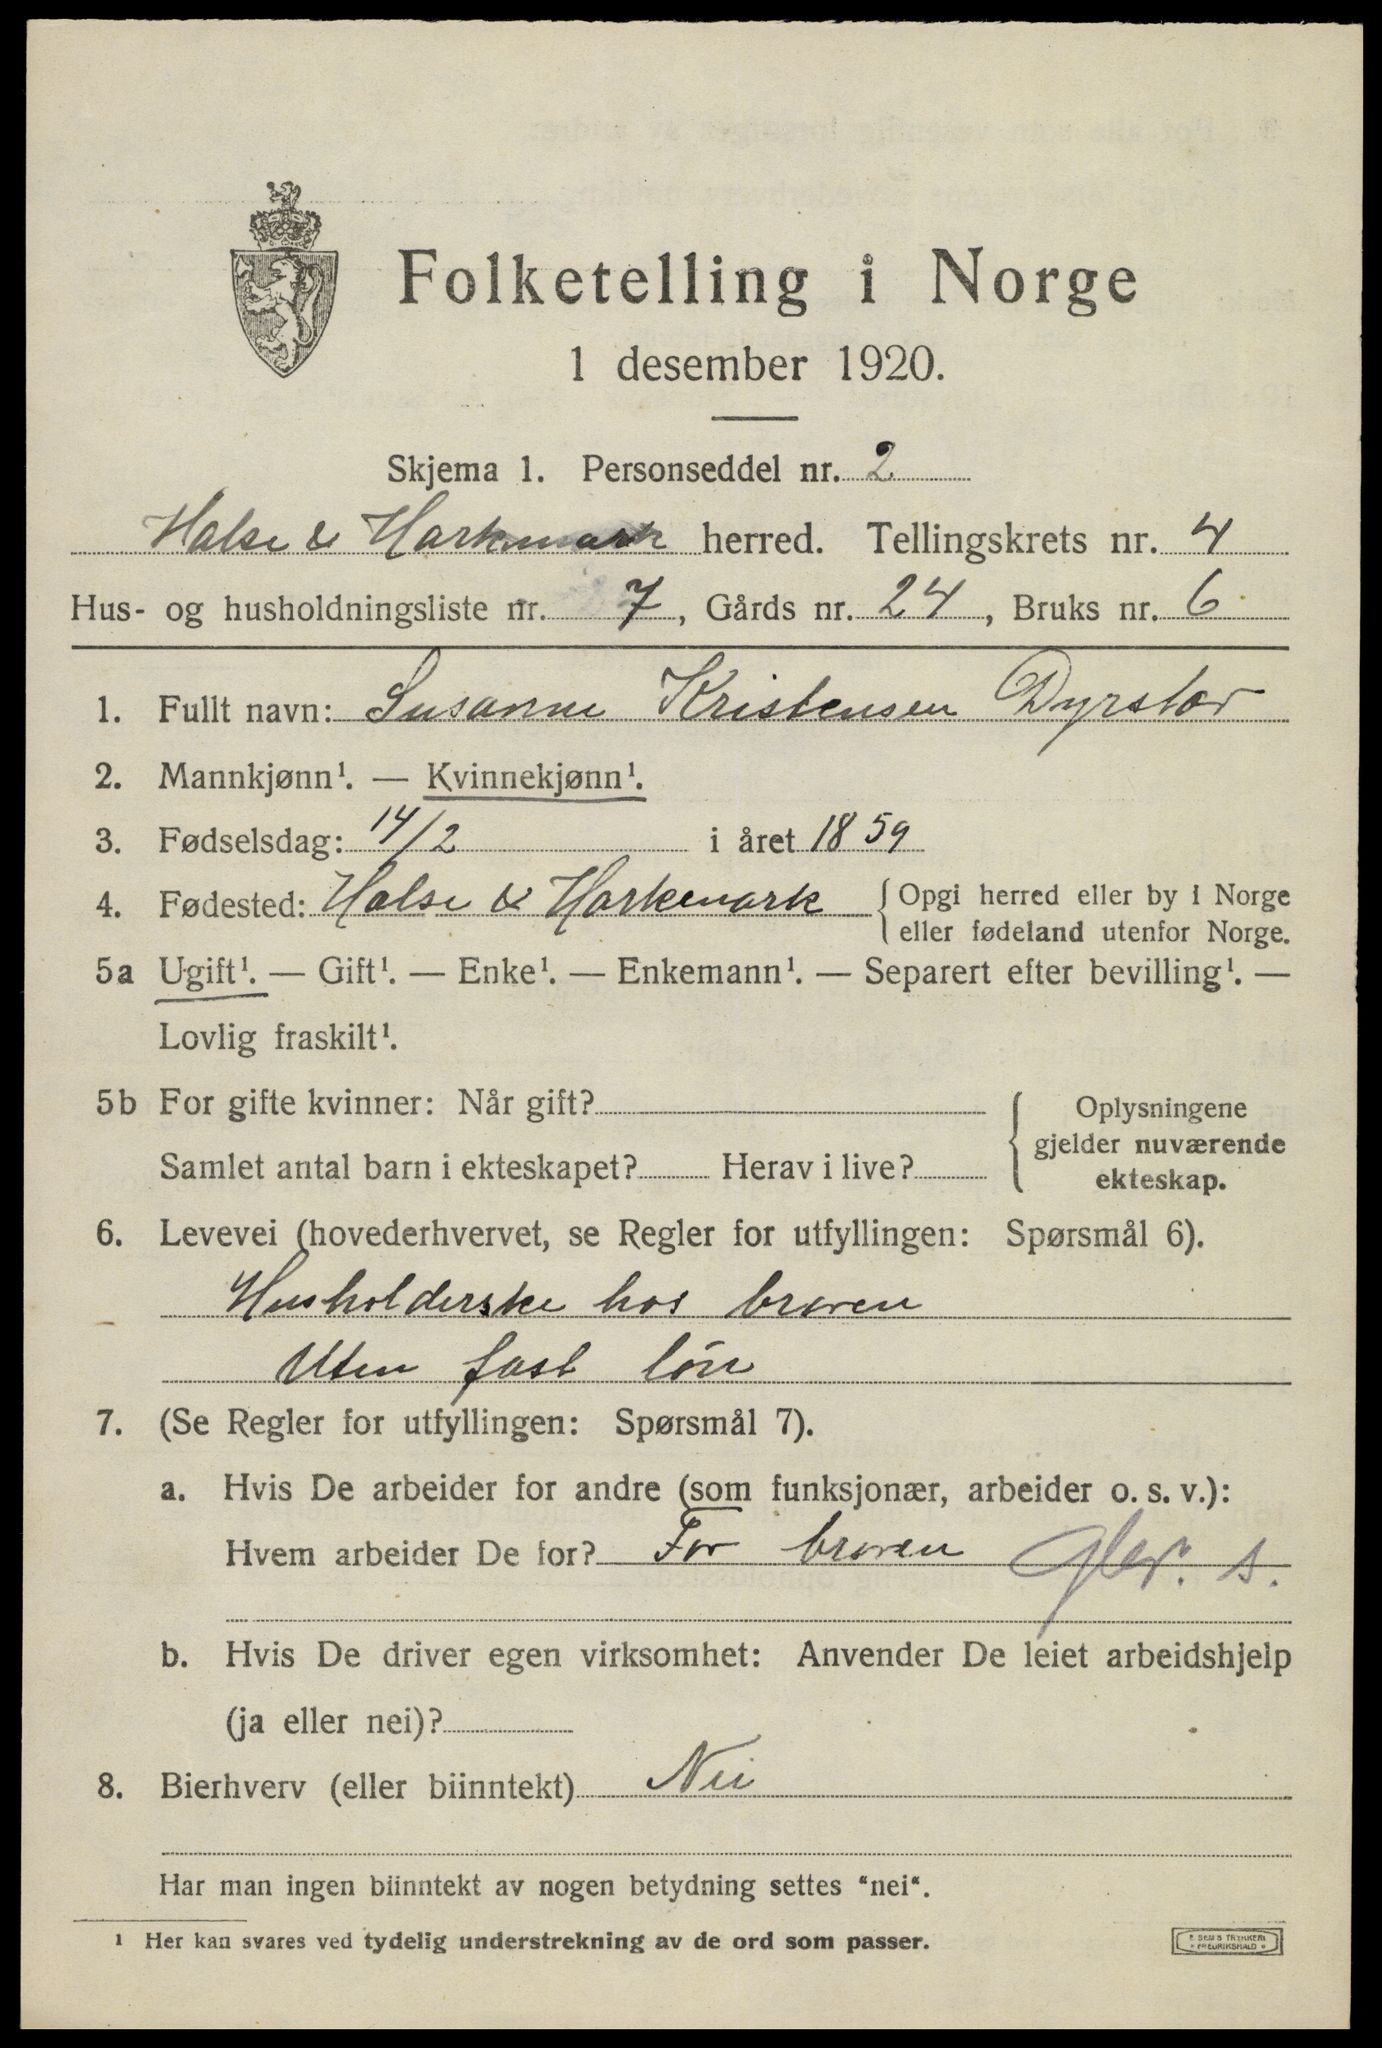 Folketelling i Norge
1 desember 1920.
Skjema 1. Personseddel nr. 2
Halse & Harkmark herred. Tellingskrets nr. 4
Hus- og husholdningsliste nr. 7, Gårds nr. 24, Bruks nr. 6
1. Fullt navn: Susanne Kristensen Dyrstad
2. Mannkjønn¹. — Kvinnekjønn¹.
3. Fødselsdag: 14/2 i året 1859
4. Fødested: Halse & Harkemark { Opgi herred eller by i Norge
eller fødeland utenfor Norge.
5a Ugift¹. — Gift¹. — Enke¹. — Enkemann¹. — Separert efter bevilling¹. —
Lovlig fraskilt¹.
5b For gifte kvinner: Når gift?
Samlet antal barn i ekteskapet? Herav i live?
{ Oplysningene
gjelder nuværende
ekteskap.
6. Levevei (hovederhvervet, se Regler for utfyllingen: Spørsmål 6).
Husholderske hos broren
Uten fast lön
7. (Se Regler for utfyllingen: Spørsmål 7).
a. Hvis De arbeider for andre (som funksjonær, arbeider o. s. v.):
Hvem arbeider De for? For broren s.
b. Hvis De driver egen virksomhet: Anvender De leiet arbeidshjelp
(ja eller nei)?
8. Bierhverv (eller biinntekt) Nei
Har man ingen biinntekt av nogen betydning settes "nei".
¹ Her kan svares ved tydelig understrekning av de ord som passer.
E SEMS TRYKKERI
FREDRIKSHALD